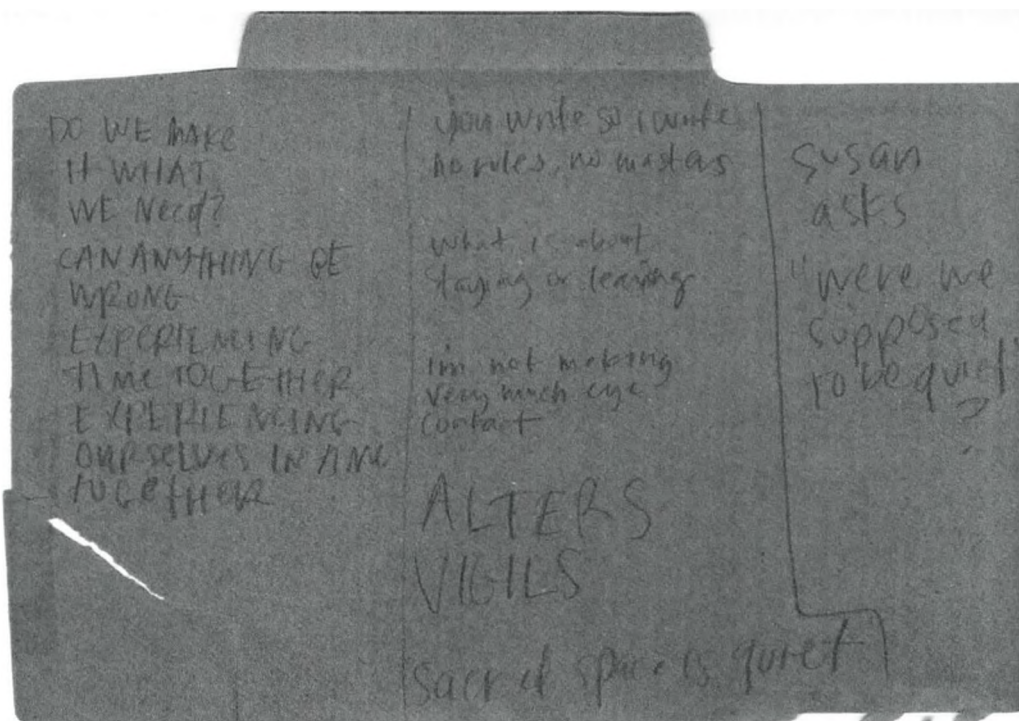 DO WE MAKE
IT WHAT
WE Need?
CAN ANYTHING BE
WRONG
EXPERIENCING
TIME TOGETHER
EXPERIENCING
OURSELVES IN TIME
TOGETHER
you write so i write
no rules, no masters
what is about
staying or leaving
im not making
very much eye
contact
ALTERS
VIGILS
sacred space is quiet
susan
asks
"were we
supposed
to be quiet"
?